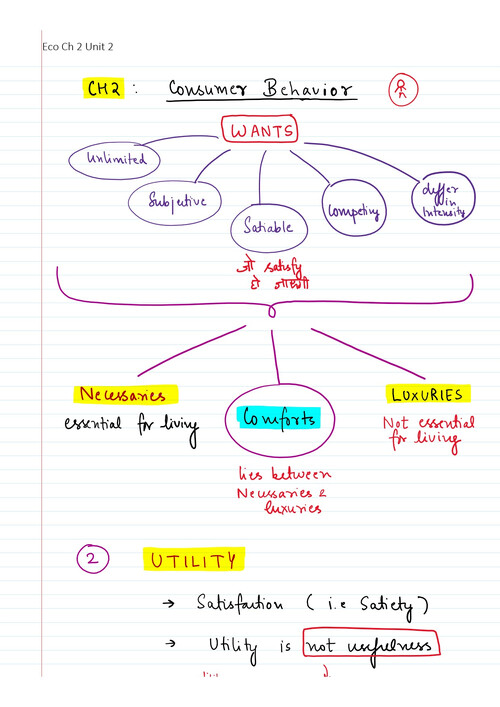 Eco Ch 2 Unit 2
CH2 : Consumer Behavior
WANTS
Unlimited
Subjective
Satiable
Competing
differ
in
Intensity
जो satisfy
हो जाएगी
Necessaries
essential for living
Comforts
lies between
Necessaries &
luxuries
LUXURIES
Not essential
for living
2 UTILITY
→ Satisfaction ( i.e Satiety )
→ Utility is not usefulness